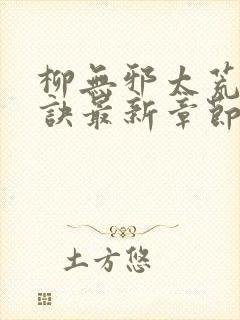 柳無邪太荒
訣最新章節
土方悠